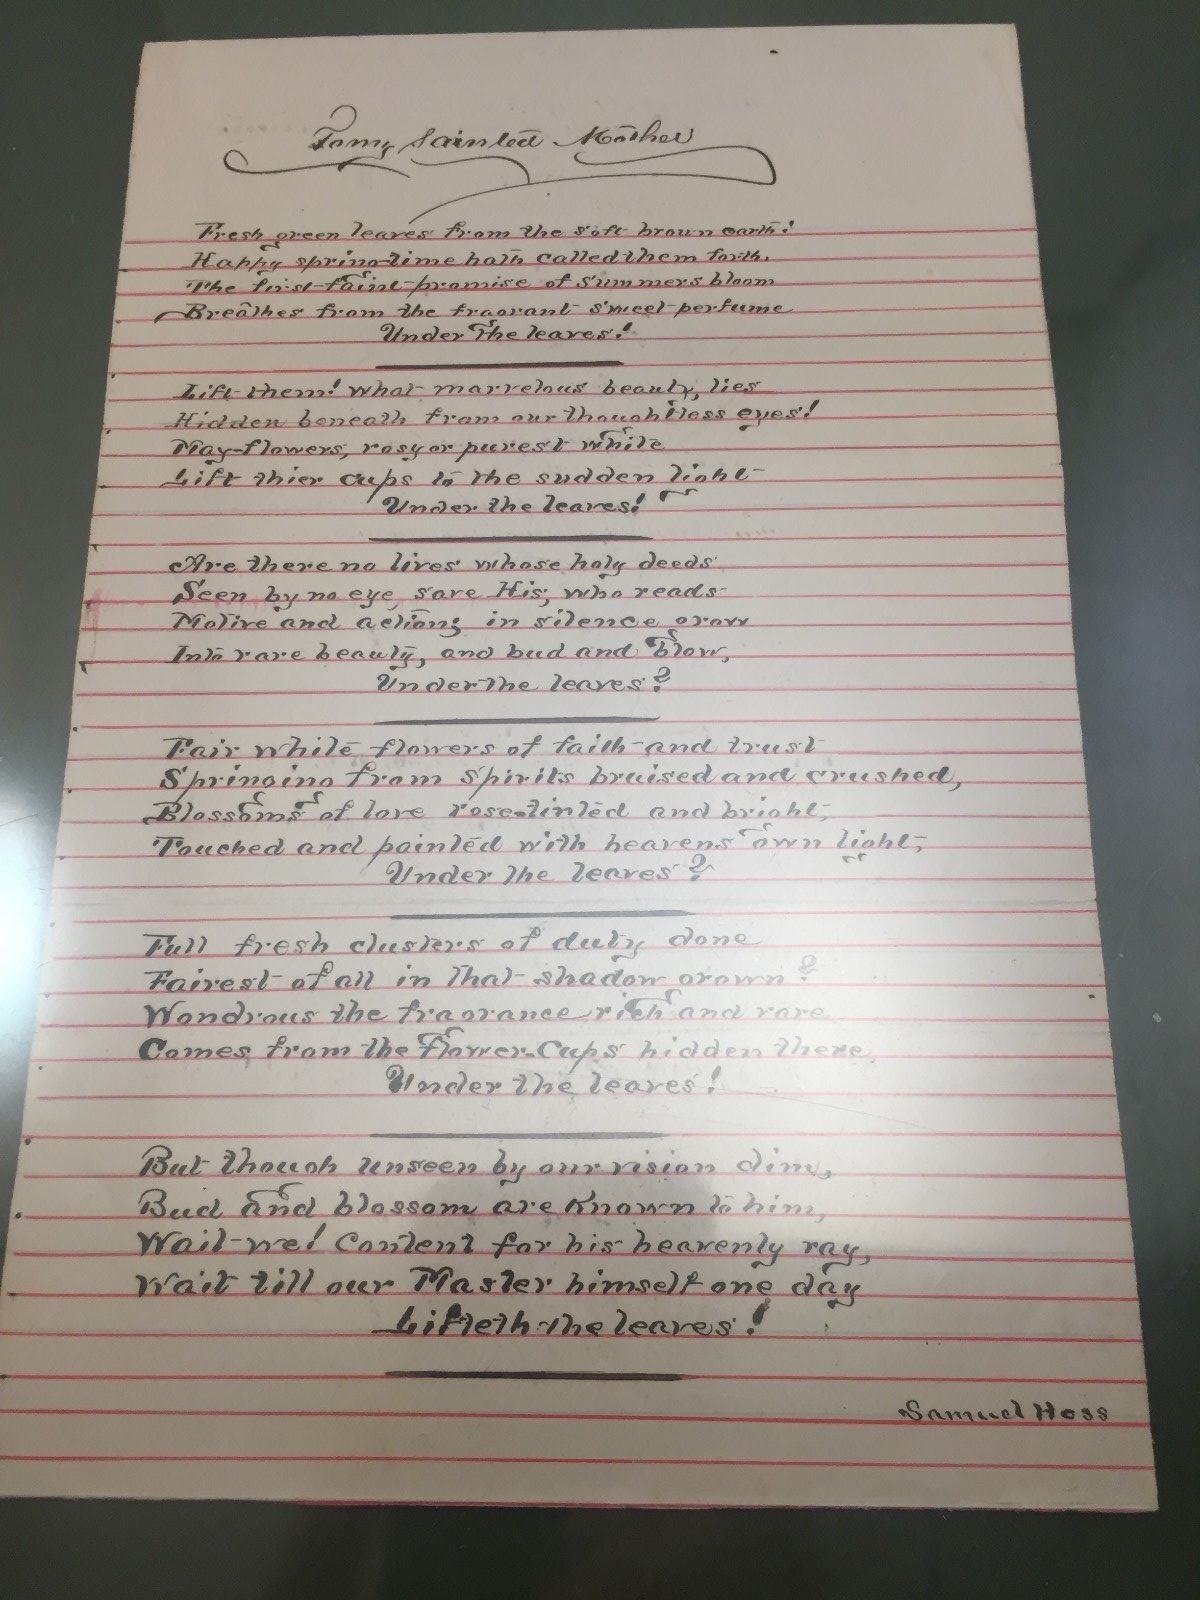 To my Sainted Mother
Fresh green leaves from the soft brown earth!
Happy spring-time hath called them forth.
The first faint promise of Summers bloom
Breathes from the fragrant sweet perfume
Under The leaves!
Lift them! what marvelous beauty, lies
Hidden beneath from our thoughtless eyes!
May-flowers, rosy or purest white
Lift thier cups to the sudden light
Under the leaves!
Are there no lives whose holy deeds
Seen by no eye, save His, who reads
Motive and action; in silence grow
Into rare beauty, and bud and blow,
Under the leaves?
Fair white flowers of faith and trust
Springing from Spirits bruised and crushed,
Blossoms of love rose-tinted and bright,
Touched and painted with heavens own light,
Under the leaves?
Full fresh clusters of duty done
Fairest of all in that shadow grown?
Wondrous the fragrance rich and rare
Comes from the flower-Cups hidden there,
Under the leaves!
But though unseen by our vision dim,
Bud and blossom are Known to him,
Wait-we! Content for his heavenly ray,
Wait till our Master himself one day
Lifteth the leaves!
Samuel Hess